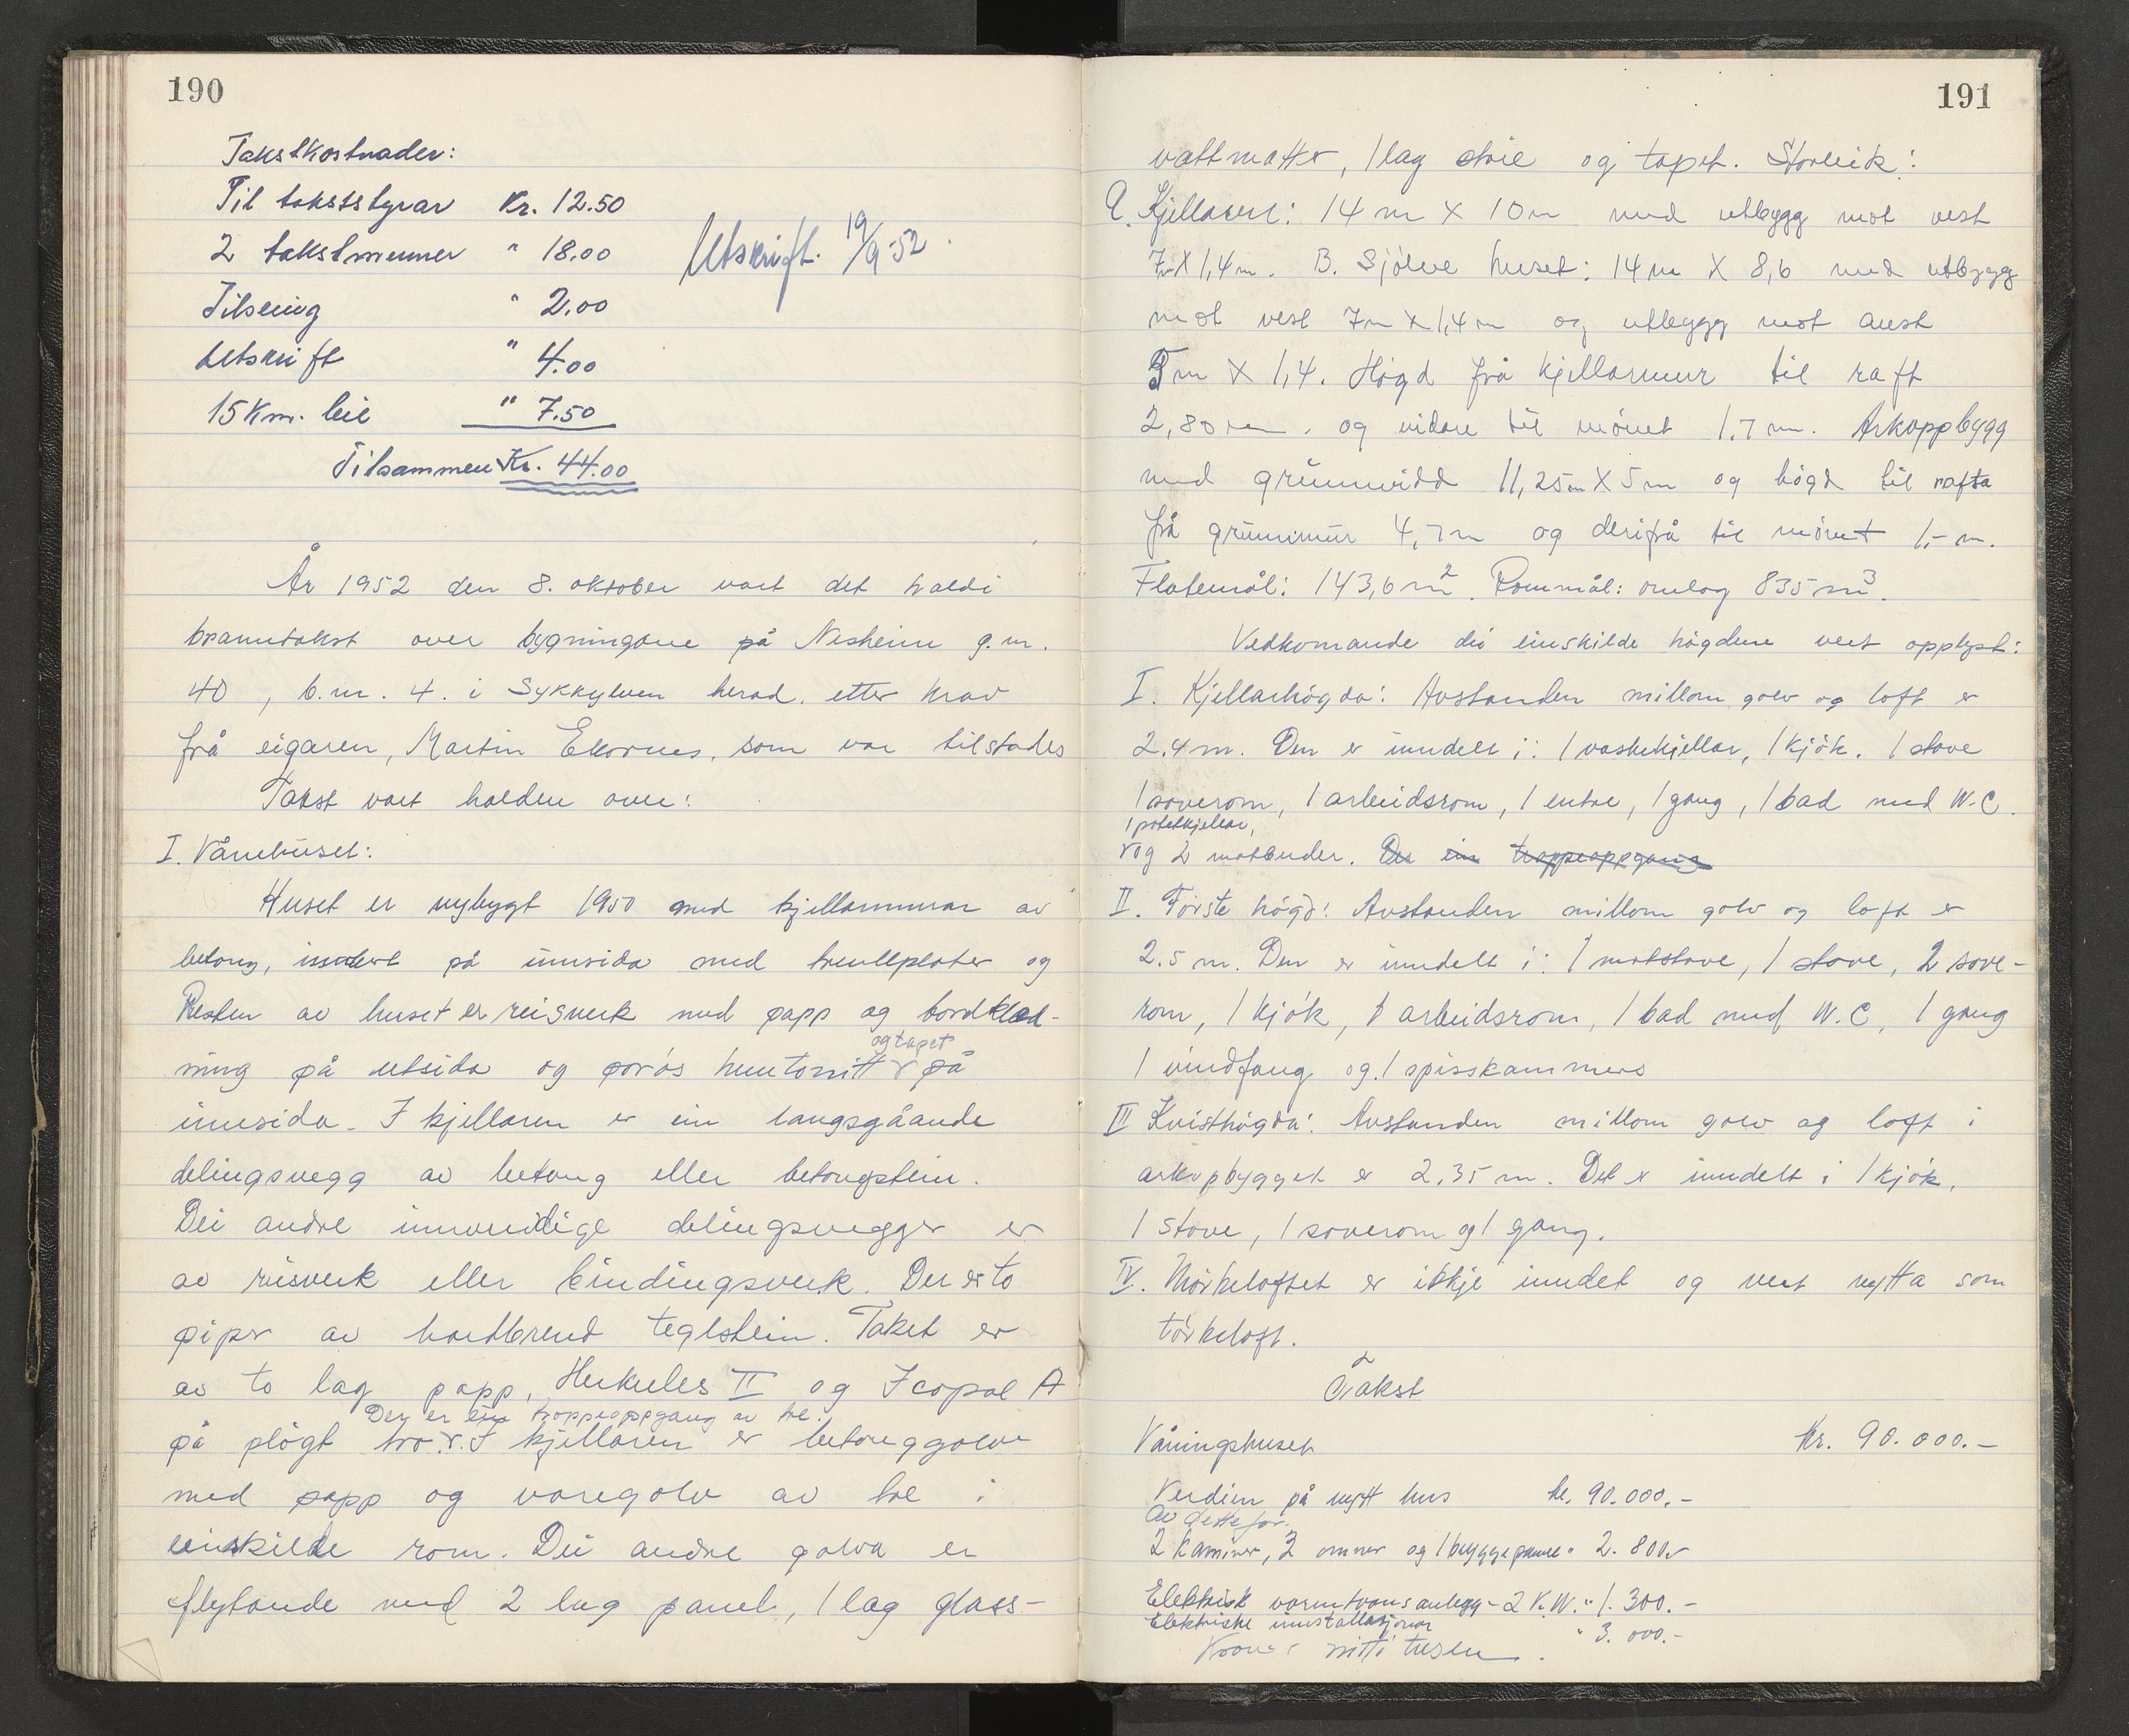 190
Takstkostnader:
Til takststyrar Kr. 12.50
2 takstmenner " 18.00
Utskrift 19/9-52
Tilseing " 2.00
Utskrift " 4.00
15 Km. bil " 7.50
Tilsammen Kr. 44.00
År 1952 den 8. oktober vart det haldi
branntakst over bygningane på Nesheim g.nr.
40, b.nr. 4. i Sykkylven herad. etter krav
frå eigaren, Martin Ekornes, som var tilstades
Takst vart halden over:
I. Vånehuset:
Huset er nybygt 1950 med kjellarmurar av
betong, isolert på innsida med treullplater og
Resten av huset er reisverk med papp og bordkled-
og tapet
ning på utsida og porøs huntonitt v på
innsida. I kjellaren er ein langsgåande
delingsvegg av betong eller betongstein.
Dei andre innvendige delingsvegger er
av reisverk eller bindingsverk. Der er to
piper av hardbrend teglstein. Taket er
av to lag papp, Herkules II og Icopal A
Der er ein trappeoppgang av tre.
på pløgt tro. v. I kjellaren er betonggolv
med papp og varegolv av tre i
einskilde rom. Dei andre golva er
flytande med 2 lag panel, 1 lag glass-
191
vattmatter, 1 lag straie og tapet. Storleik:
A. Kjellaren: 14 m X 10 m med utbygg mot vest
7m X 1,4 m. B. Sjølve huset: 14 m X 8,6 med utbygg
mot vest 7m X 1,4 m og utbygg mot aust
5 m X 1,4. Høgd frå kjellarmur til raft
2,80 m. og vidare til mønet 1.7 m. Arkoppbygg
med grunnvidd 11,25m X 5 m og høgd til rafta
frå grunnmur 4,7 m og derifrå til mønet 1,- m.
Flatemål: 143,6 m2. Rommål: omlag 835 m3.
Vedkomande dei einskilde høgdene vert opplyst:
I. Kjellarhøgda: Avstanden millom golv og loft er
2.4 m. Den er inndelt i: 1 vaskekjellar, 1 kjøk. 1 stove
1 soverom, 1 arbeidsrom, 1 entre, 1 gang, 1 bad med W.C.
1 potetkjellar,
v og 2 matbuder. Der ein trappeoppgang
II. Første høgd: Avstanden millom golv og loft er
2.5 m. Den er inndelt i: 1 matstove, 1 stove, 2 sove-
rom, 1 kjøk, 1 arbeidsrom, 1 bad med W.C, 1 gang
1 vindfang og 1 spisskammers
III Kvisthøgda: Avstanden millom golv og loft i
arkopbygget er 2,35 m. Det er inndelt i 1 kjøk,
1 stove, 1 soverom og 1 gang.
IV. Mørkeloftet er ikkje inndelt og vert nytta som
tørkeloft.
Takst
Våningshuset Kr. 90.000.-
Verdien på nytt hus kr. 90.000.-
Av dette for.
2 kaminer, 3 omner og 1 bryggepanne " 2.800.-
Elektrisk varmtvansanlegg - 2 K.W. " 1.300.-
Elektriske innstallasjonar " 3.000.-
Kroner nitti tusen.